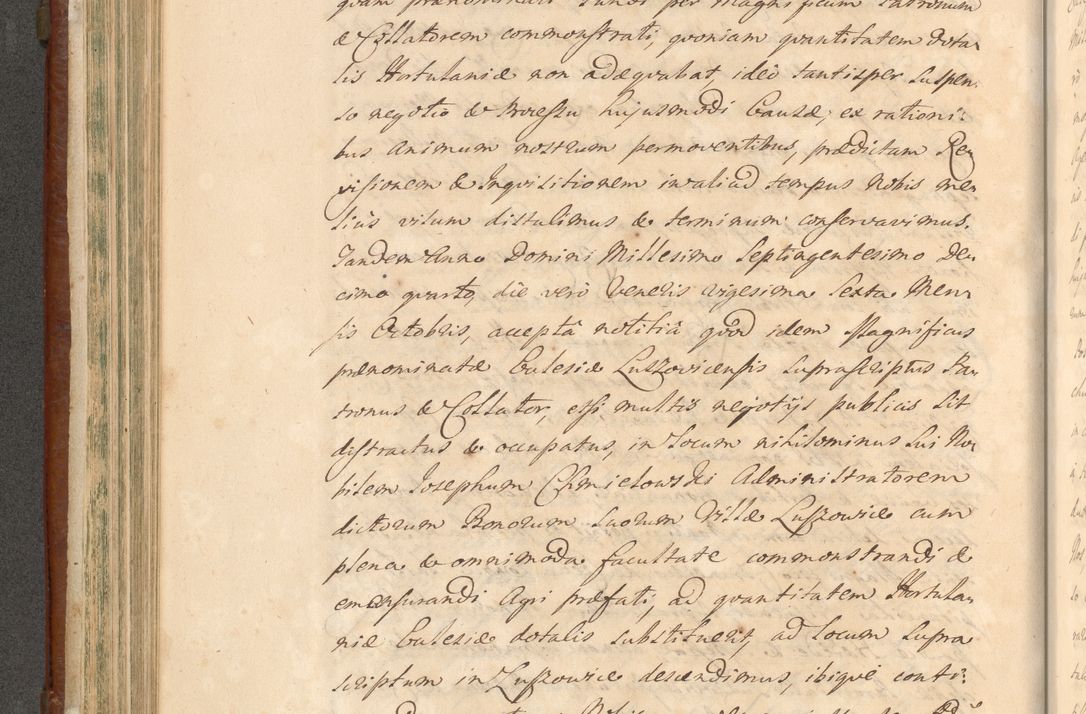 quam prænominati fundi per Magnificum Patronum
& Collatorem commonstrati, quoniam quantitatem dota=
lis Hortulaniæ non adæquabat, ideò tantisper suspen=
so negotio & Processu hujusmodi Causæ, ex rationi=
bus Animum nostrum permoventibus, prædictam Re=
visionem & Inquisitionem in aliud tempus nobis me=
liùs visum distulimus & terminum conservavimus.
Tandem Anno Domini Millesimo Septingentesimo De=
cimo quarto, die verò Veneris vigesima Sexta Men=
sis Octobris, acceptâ notitiâ quòd idem Magnificus
prænominatæ Ecclesiæ Luszovicensis suprascriptus Pa=
tronus & Collator, etsi multis negotijs publicis sit
distractus & occupatus, in locum nihilominus sui No=
bilem Josephum Chmielowski Administratorem
dictorum Bonorum suorum Villæ Luszowice cum
plena & omnimoda facultate commonstrandi &
emensurandi Agri præfati, ad quantitatem Hortula=
niæ Ecclesiæ dotalis substituerit, ad locum supra
scriptum in Luszowice descendimus, ibique conti=